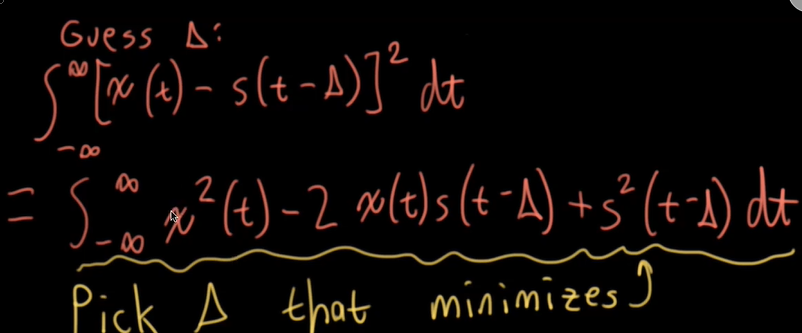 Guess Δ:
∫_{-∞}^{∞} [x(t) - s(t-Δ)]² dt
= ∫_{-∞}^{∞} x²(t) - 2 x(t)s(t-Δ) + s²(t-Δ) dt
Pick Δ that minimizes